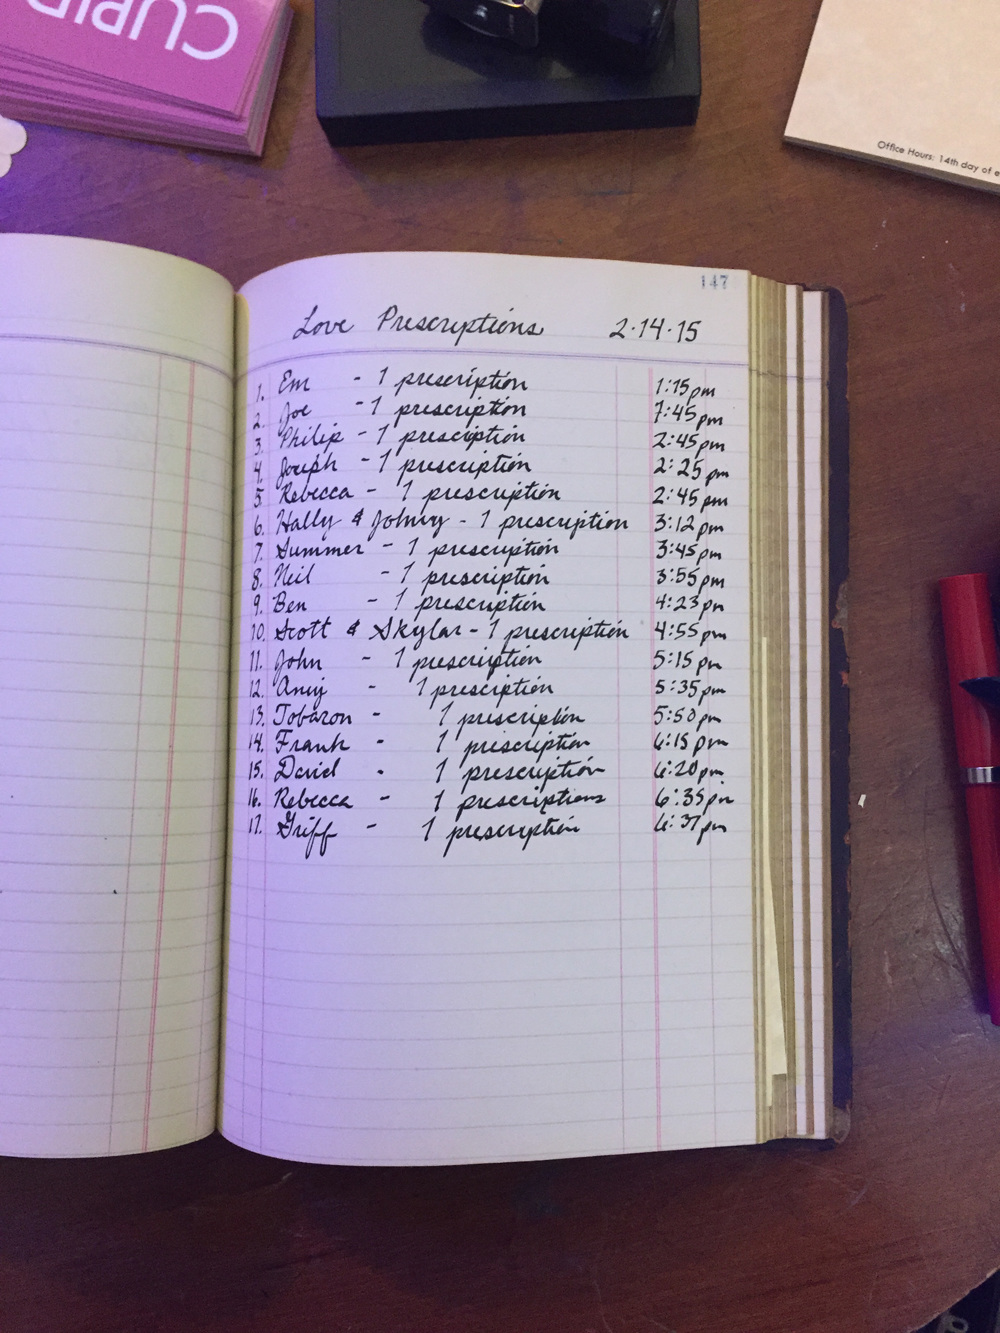 CUPID
Office Hours: 14th day of e
147
Love Prescriptions 2.14.15
1. Em - 1 prescription 1:15pm
2. Joe - 1 prescription 1:45pm
3. Philip - 1 prescription 2:45pm
4. Joseph - 1 prescription 2:25pm
5. Rebecca - 1 prescription 2:45pm
6. Hally & Johnny - 1 prescription 3:12pm
7. Summer - 1 prescription 3:45pm
8. Neil - 1 prescription 3:55pm
9. Ben - 1 prescription 4:23pm
10. Scott & Skylar - 1 prescription 4:55pm
11. John - 1 prescription 5:15pm
12. - 1 prescription 5:35pm
13. Tobaron - 1 prescription 5:50pm
14. Frank - 1 prescription 6:15pm
15. David - 1 prescription 6:20pm
16. Rebecca - 1 prescriptions 6:35pm
17. Griff - 1 prescription 6:37pm